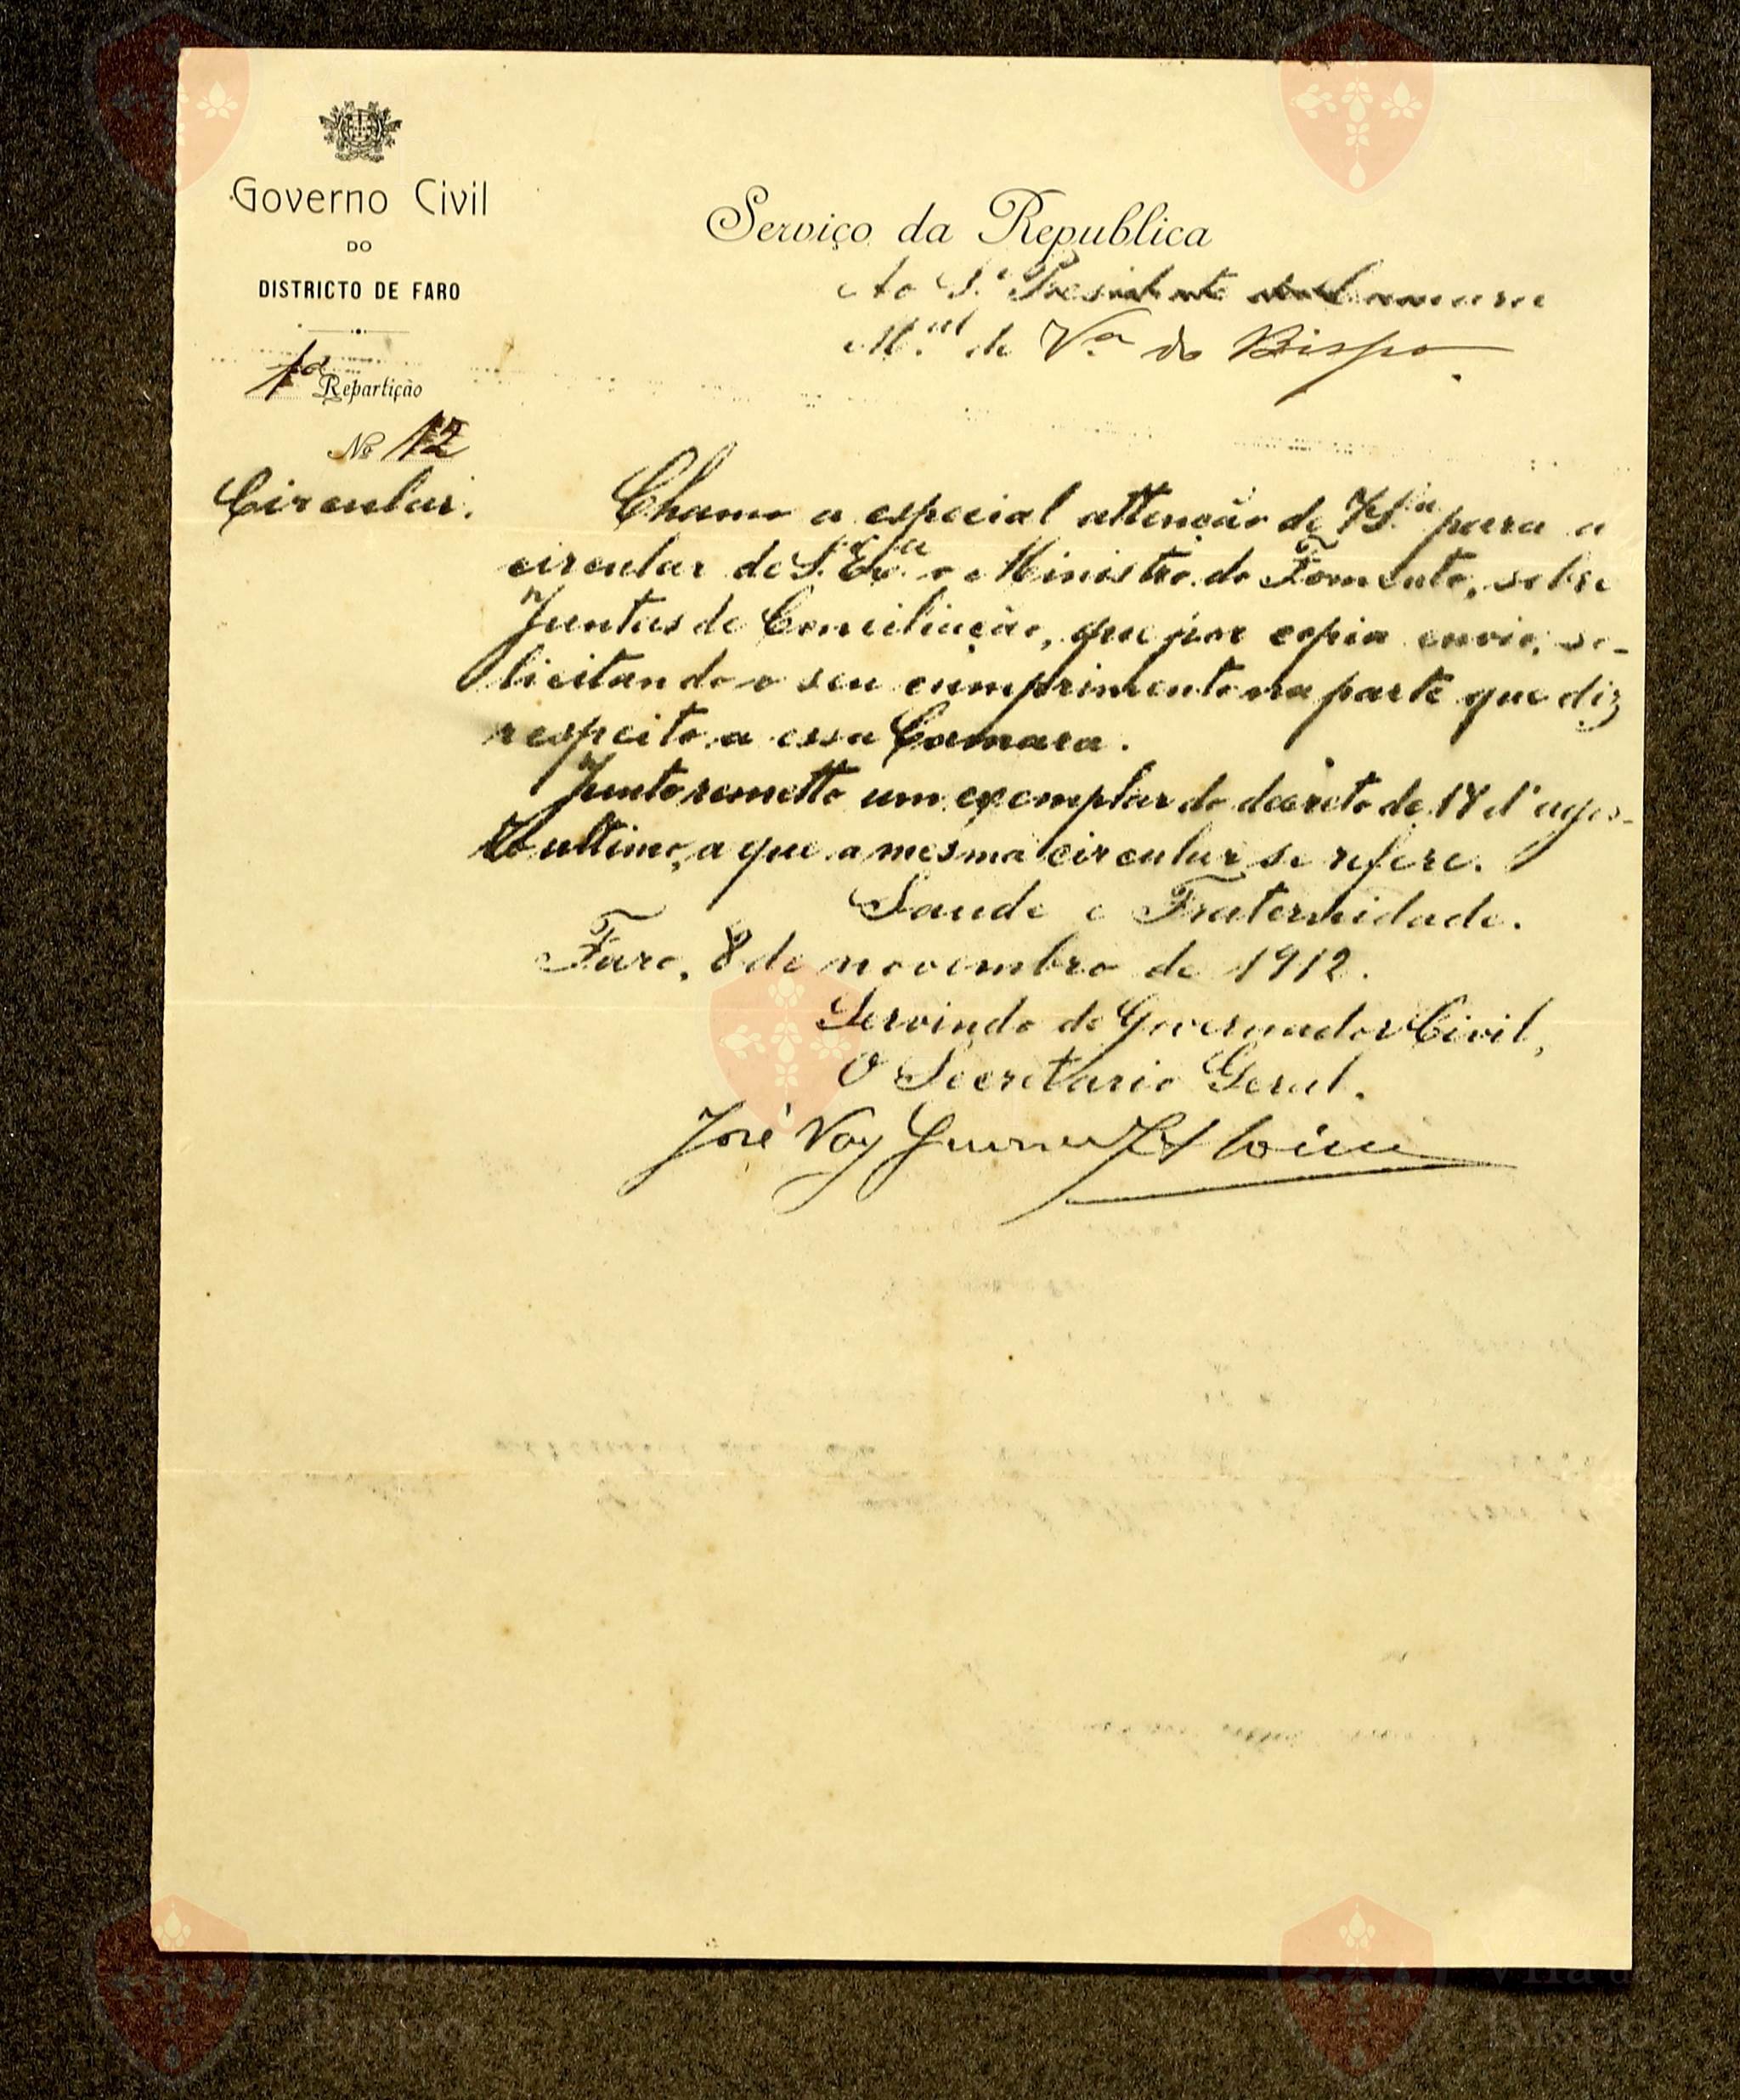 Governo Civil
DO
DISTRICTO DE FARO
1ª Repartição
Nº 12
Circular.
Serviço da Republica
Ao S.r Presidente da Camara
M.al de V.a do Bispo
Chamo a especial attenção de V. S.a para a
circular de S. Ex.cia o Ministro do Fomento, sobre
Juntas de Conciliação, que por copia envio, so-
licitando o seu cumprimento na parte que diz
respeito a essa Camara.
Junto remetto um exemplar do decreto de 17 d'agos-
to ultimo, a que a mesma circular se refere.
Saude e Fraternidade.
Faro, 8 de novembro de 1912.
Servindo de Governador Civil,
O Secretario Geral.
José Vaz Guerreiro
Vila do
Bispo
Vila do
Bispo